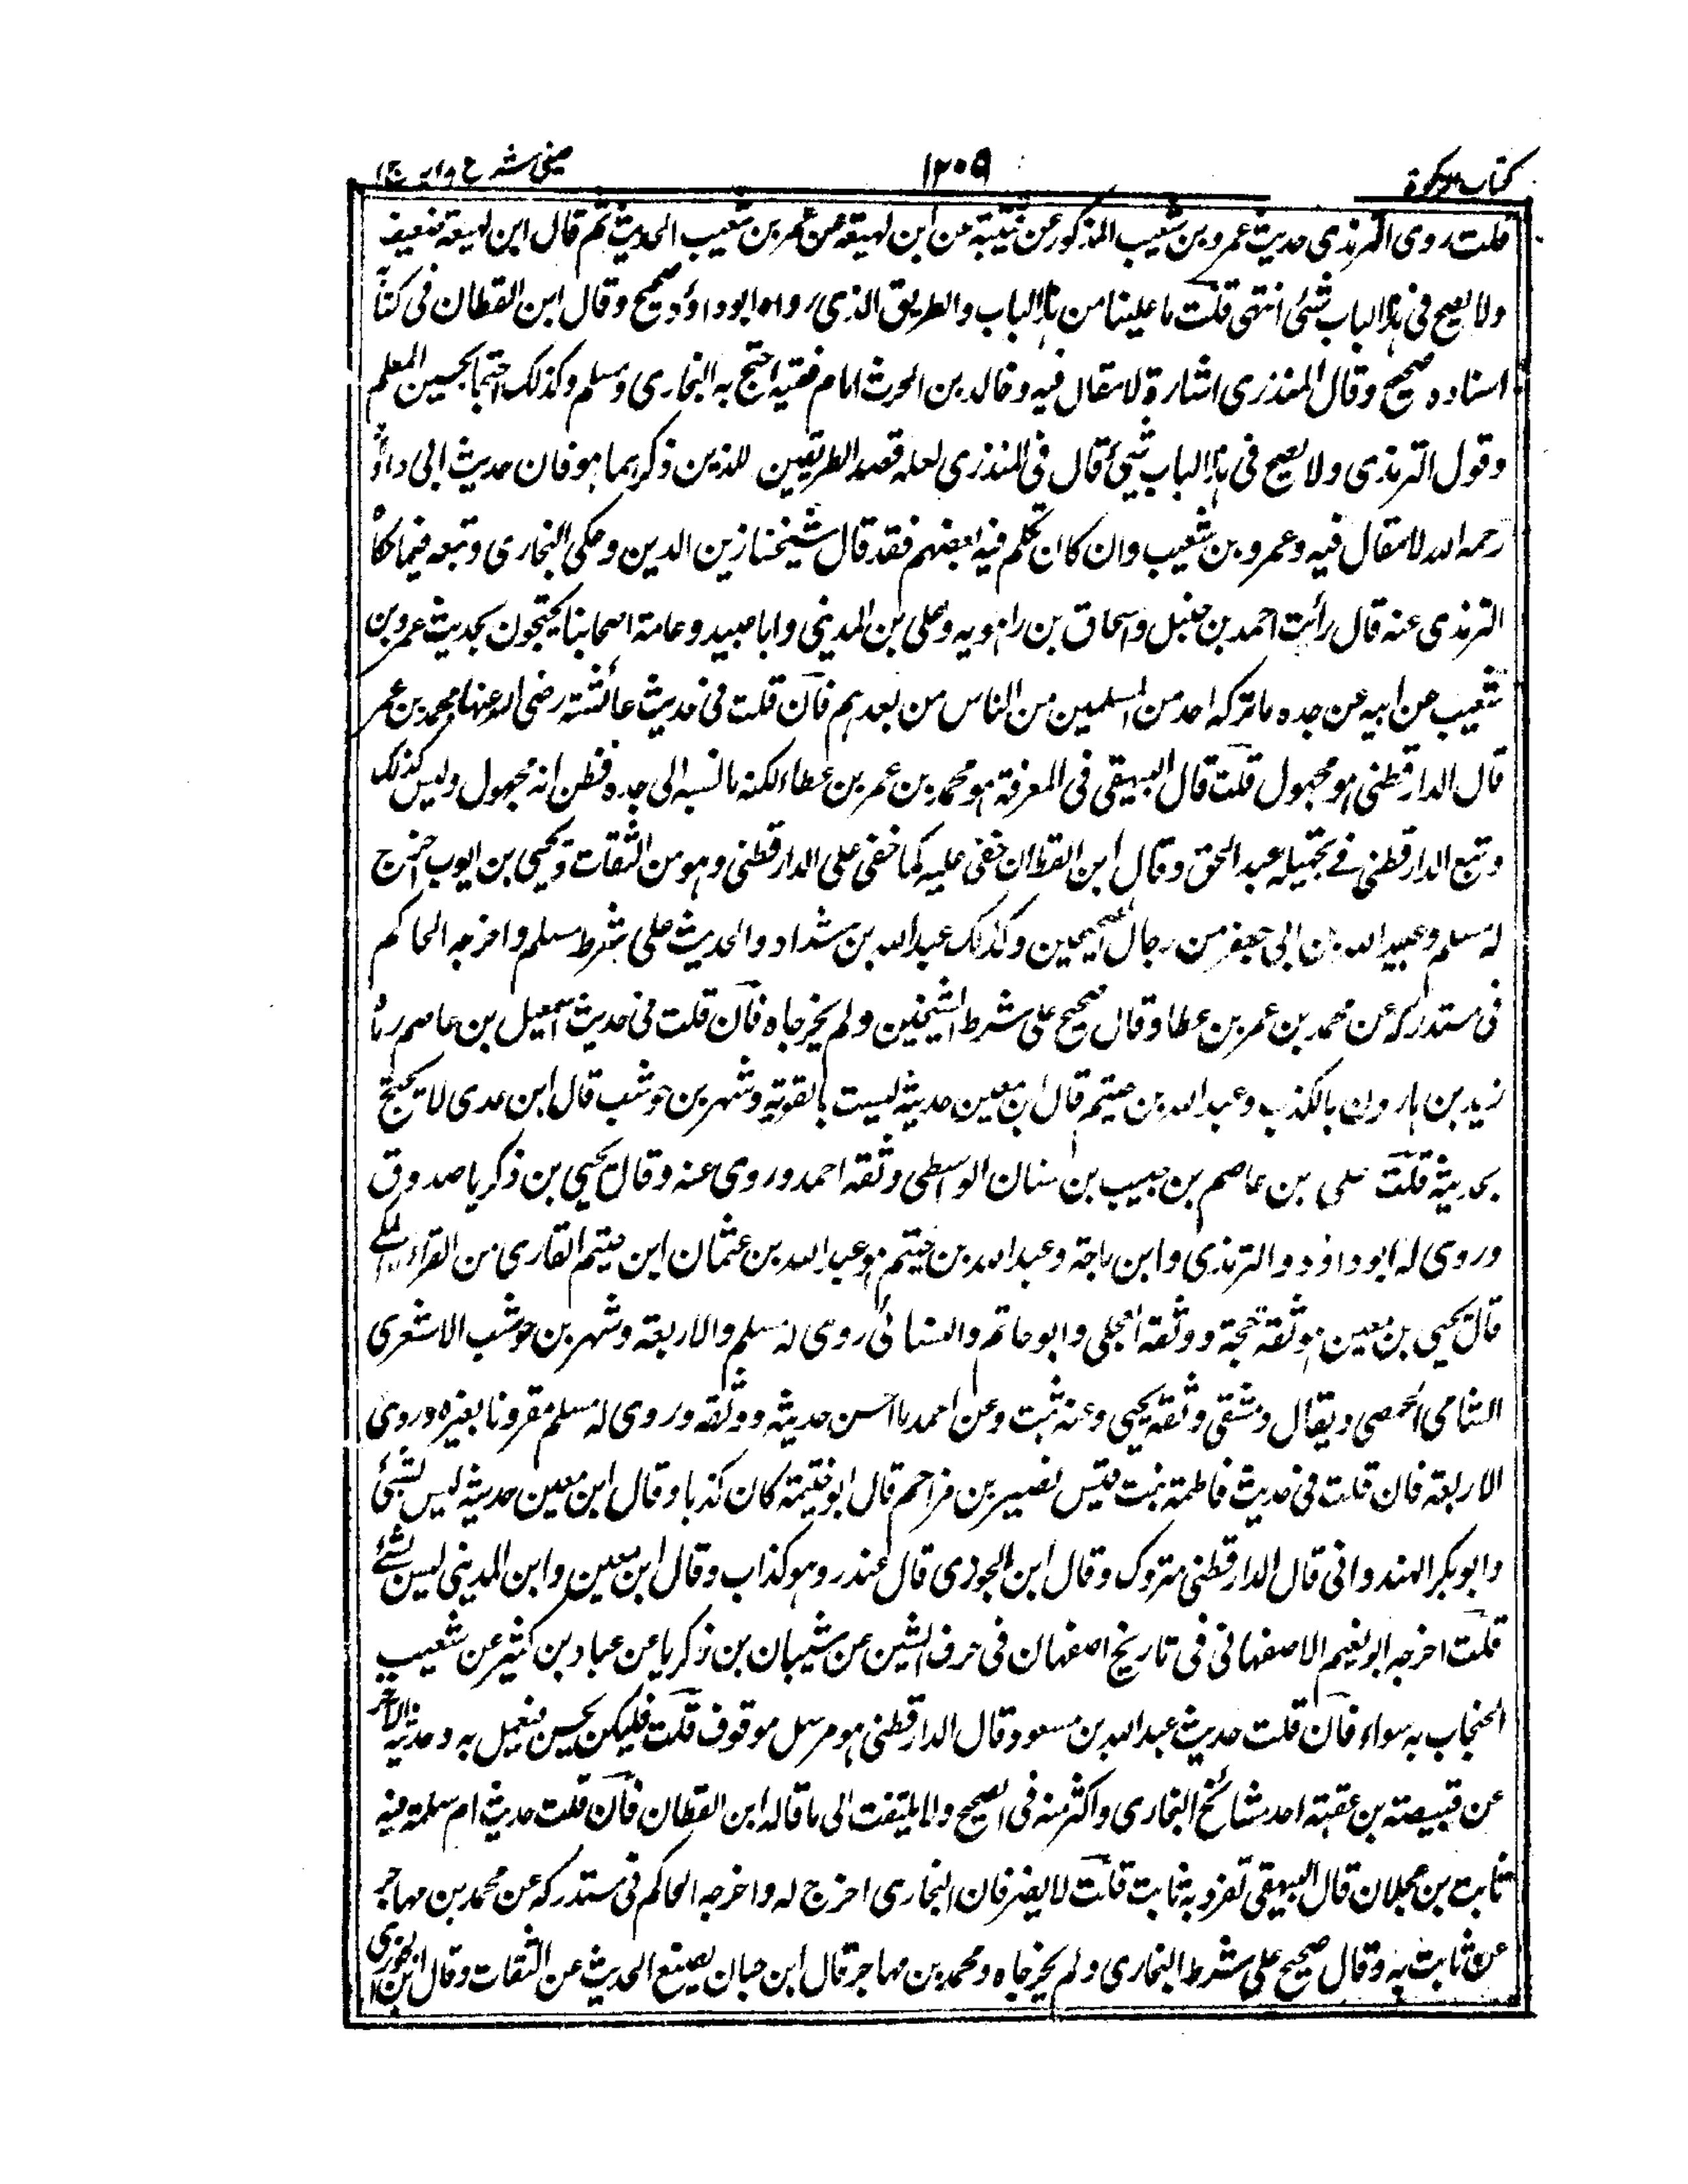 كتاب الزكوة
١٢٠٩
عينى شرح هدايه ج ١
قلت روى الترمذى حديث عمرو بن شعيب المذكور عن قتيبة عن ابن لهيعة عن عمر بن شعيب الحديث ثم قال ابن لهيعة ضعيف
ولا يصح فى هذا الباب شئى انتهى قلت ما علينا من هذا الباب والطريق الذى رواه ابوداؤد صحيح وقال ابن القطان فى كتابه
اسناده صحيح وقال المنذرى اشارة لا مقال فيه وخالد بن الحرث امام فقيه احتج به البخارى ومسلم وكذلك احتجا بحسين المعلم
وقول الترمذى ولا يصح فى هذا الباب شيئ قال فى المنذرى لعله قصد الطريقين للذين ذكرهما هو فان حديث ابى داؤد
رحمه الله لا مقال فيه وعمرو بن شعيب وان كان تكلم فيه بعضهم فقد قال شيخنا زين الدين وحكى البخارى وتبعه فيما حكاه
الترمذى عنه قال رأيت احمد بن حنبل واسحاق بن راهويه وعلى بن المدينى وابا عبيد وعامة اصحابنا يحتجون بحديث عمرو بن
شعيب عن ابيه عن جده ما تركه احد من المسلمين من الناس من بعدهم فان قلت فى حديث عائشة رضى الله عنها محمد بن عمر
قال الدارقطنى هو مجهول قلت قال البيهقى فى المعرفة هو محمد بن عمر بن عطاء لكنه ما نسبه الى جده فظن انه مجهول وليس كذلك
وتبع الدارقطنى فى تجهيله عبد الحق وقال ابن القطان خفى عليه كما خفى على الدارقطنى وهو من الثقات ويحيى بن ايوب اخرج
له مسلم وعبيد الله بن ابى جعفر من رجال الصحيحين وكذلك عبد الله بن شداد والحديث على شرط مسلم واخرجه الحاكم
فى مستدركه عن محمد بن عمر بن عطا وقال صحيح على شرط الشيخين ولم يخرجاه فان قلت فى حديث اسمعيل بن عاصم رماه
زيد بن هارون بالكذب وعبد الله بن خيثم قال ابن معين حديثه ليست بالقوية وشهر بن حوشب قال ابن عدى لا يحتج
بحديثه قلت على بن عاصم بن حبيب بن سنان الواسطى وثقه احمد وروى عنه وقال يحيى بن ذكريا صدوق
وروى له ابو داؤد والترمذى وابن ماجة وعبد الله بن خيثم هو عبد الله بن عثمان ابن خيثم القارى من القراء المكے
قال يحيى بن معين هو ثقة حجة ووثقه العجلى وابو حاتم والنسائى روى له مسلم والاربعة وشهر بن حوشب الاشعرى
الشامى الحمصى ويقال دمشقى وثقه يحيى وعنه ثبت وعن احمد ما احسن حديثه ووثقه وروى له مسلم مقرونا بغيره وروى
الاربعة فان قلت فى حديث فاطمة بنت قيس نصير بن مزاحم قال ابو خيثمة كان كذبا وقال ابن معين حديثه ليس بشئى
وابوبكر الهندوانى قال الدارقطنى متروك وقال ابن الجوزى قال غندر وهو كذاب وقال ابن معين وابن المدينى ليس بشئے
قلت اخرجه ابو نعيم الاصفهانى فى تاريخ اصفهان فى حرف الشين عن شيبان بن زكريا عن عباد بن كثير عن شعيب
الحنجاب به سواء فان قلت حديث عبد الله بن مسعود قال الدارقطنى هو مرسل موقوف قلت فليكن بحسن فيعمل به وحديثه الآخر
عن قبيصة بن عقبة احد مشائخ البخارى واكثر منه فى الصحيح ولا يلتفت الى ما قاله ابن القطان فان قلت حديث ام سلمة فيه
ثابت بن عجلان قال البيهقى تفرد به ثابت قلت لا يضر فان البخارى اخرج له واخرجه الحاكم فى مستدركه عن محمد بن مهاجر
عن ثابت به وقال صحيح على شرط البخارى ولم يخرجاه ومحمد بن مهاجر قال ابن حبان يصنع الحديث عن الثقات وقال ابن الجوزى